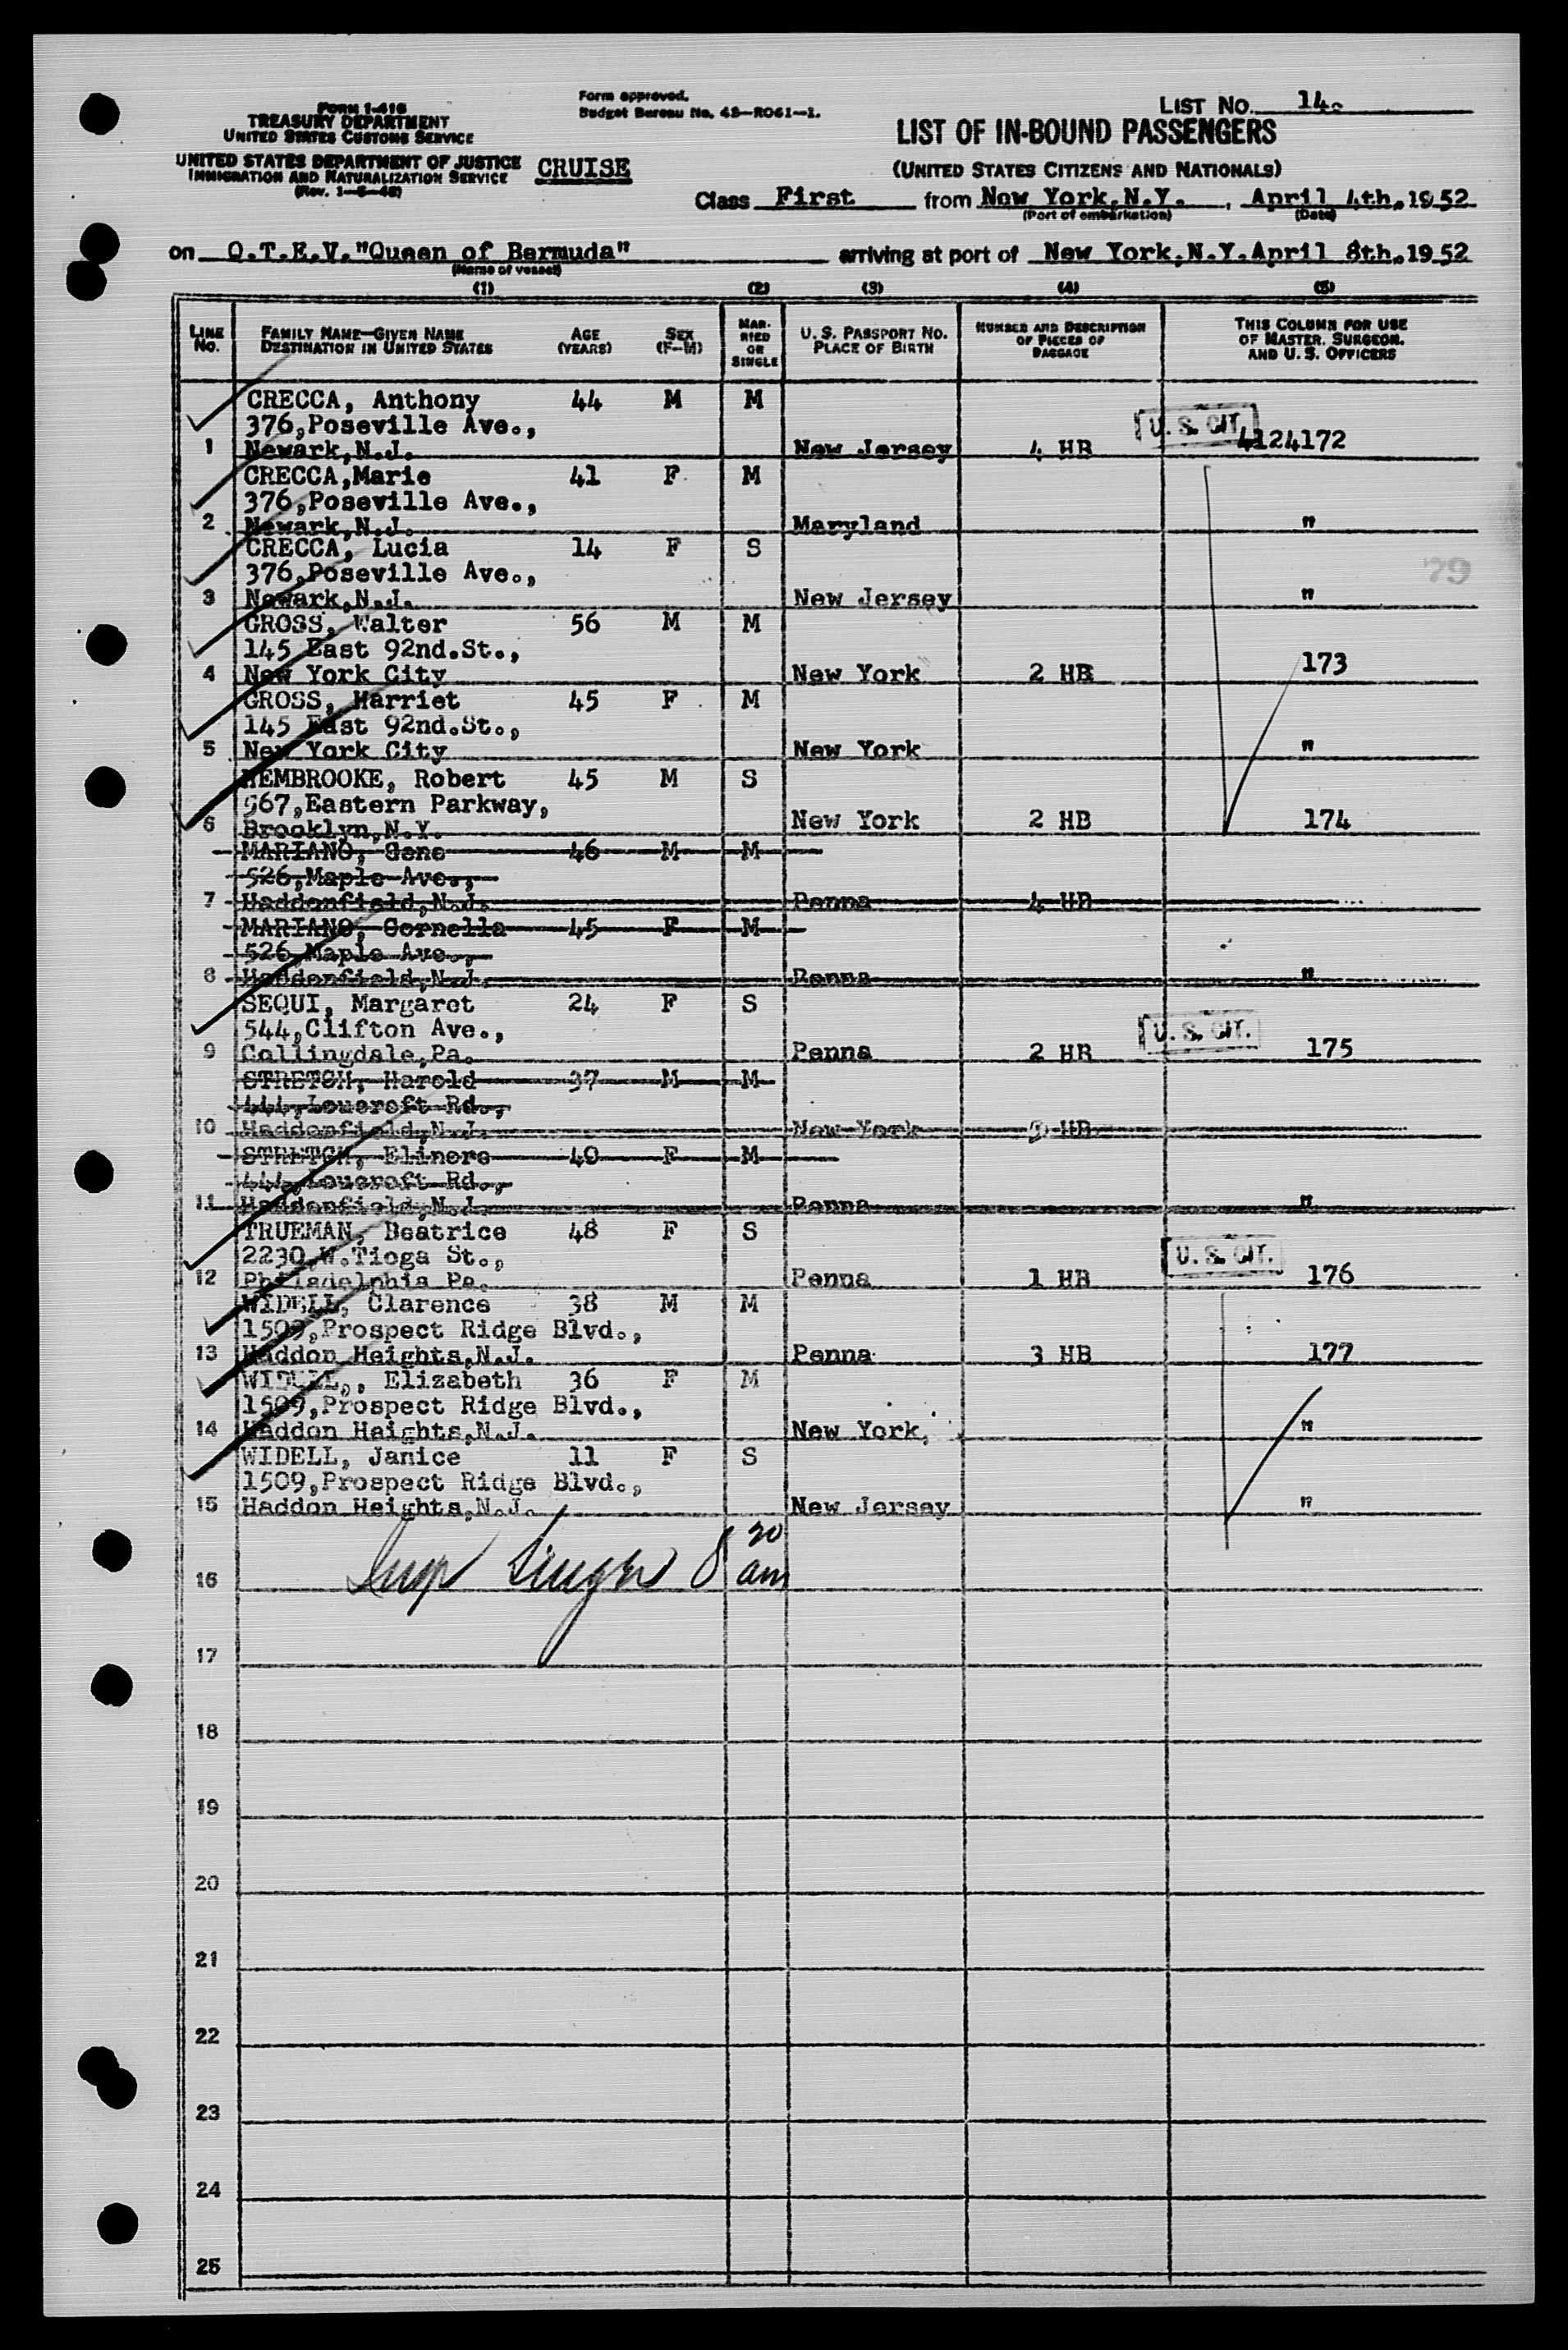 Form I-418
TREASURY DEPARTMENT
UNITED STATES CUSTOMS SERVICE
UNITED STATES DEPARTMENT OF JUSTICE
IMMIGRATION AND NATURALIZATION SERVICE
CRUISE
Form approved.
Budget Bureau No. 43-R061-1.
LIST NO. 14.
LIST OF IN-BOUND PASSENGERS
(UNITED STATES CITIZENS AND NATIONALS)
Class First from New York,N.Y. , April 4th,1952
(Port of embarkation) (Date)
on Q.T.E.V."Queen of Bermuda" arriving at port of New York,N.Y.April 8th,1952
(Name of vessel)
(1) (2) (3) (4) (5)
LINE NO. FAMILY NAME—GIVEN NAME DESTINATION IN UNITED STATES AGE (YEARS) SEX (F-M) MARRIED OR SINGLE U. S. PASSPORT NO. PLACE OF BIRTH NUMBER AND DESCRIPTION OF PIECES OF BAGGAGE THIS COLUMN FOR USE OF MASTER, SURGEON, AND U. S. OFFICERS
CRECCA, Anthony 44 M M
376,Poseville Ave., U. S. CIT.
1 Newark,N.J. New Jersey 4 HB 4124172
CRECCA,Marie 41 F M
376,Poseville Ave.,
2 Newark,N.J. Maryland "
CRECCA, Lucia 14 F S
376,Poseville Ave., 79
3 Newark,N.J. New Jersey "
GROSS, Walter 56 M M
145 East 92nd.St.,
4 New York City New York 2 HB 173
GROSS, Harriet 45 F M
145 East 92nd.St.,
5 New York City New York "
HEMBROOKE, Robert 45 M S
967,Eastern Parkway,
6 Brooklyn,N.Y. New York 2 HB 174
MARIANO, Gene 46 M M
526,Maple Ave.,
7 Haddonfield,N.J. Penna 4 HB
MARIANO, Cornella 45 F M
526,Maple Ave.,
8 Haddonfield,N.J. Penna "
SEQUI, Margaret 24 F S
544,Clifton Ave., U. S. CIT.
9 Collingdale,Pa. Penna 2 HB 175
STRETCH, Harold 37 M M
444,Loucroft Rd.,
10 Haddonfield,N.J. New York 2 HB
STRETCH, Elinore 40 F M
444,Loucroft Rd.,
11 Haddonfield,N.J. Penna "
TRUEMAN, Beatrice 48 F S
2230,W.Tioga St., U. S. CIT.
12 Philadelphia Pa. Penna 1 HB 176
WIDELL, Clarence 38 M M
1509,Prospect Ridge Blvd.,
13 Haddon Heights,N.J. Penna 3 HB 177
WIDELL,, Elizabeth 36 F M
1509,Prospect Ridge Blvd.,
14 Haddon Heights,N.J. New York, "
WIDELL, Janice 11 F S
1509,Prospect Ridge Blvd.,
15 Haddon Heights,N.J. New Jersey "
16 Insp 8 20 am
17
18
19
20
21
22
23
24
25